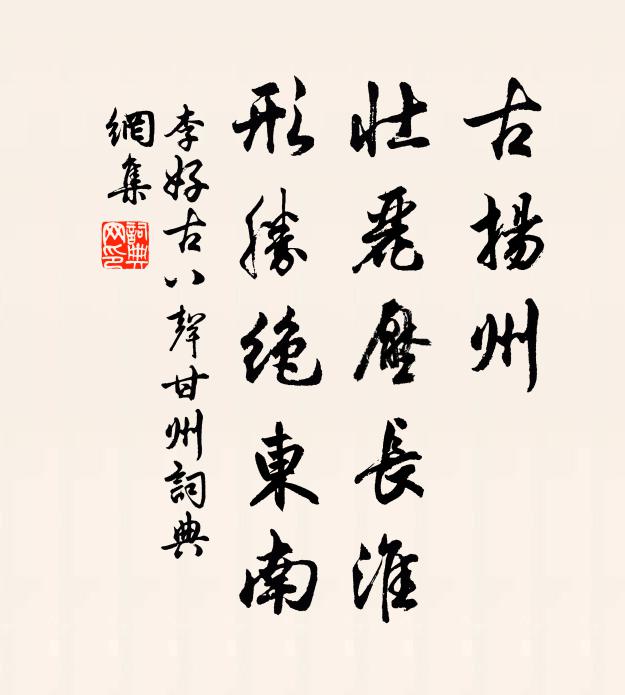 古揚州
壯麗壓長淮
形勝絕東南
李好古八聲甘州詞典
網集
詞典
网印